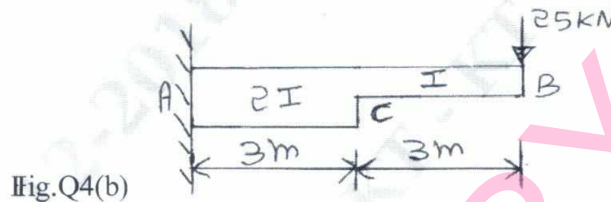 25KN
A
2I
I
B
C
3m
3m
Fig.Q4(b)